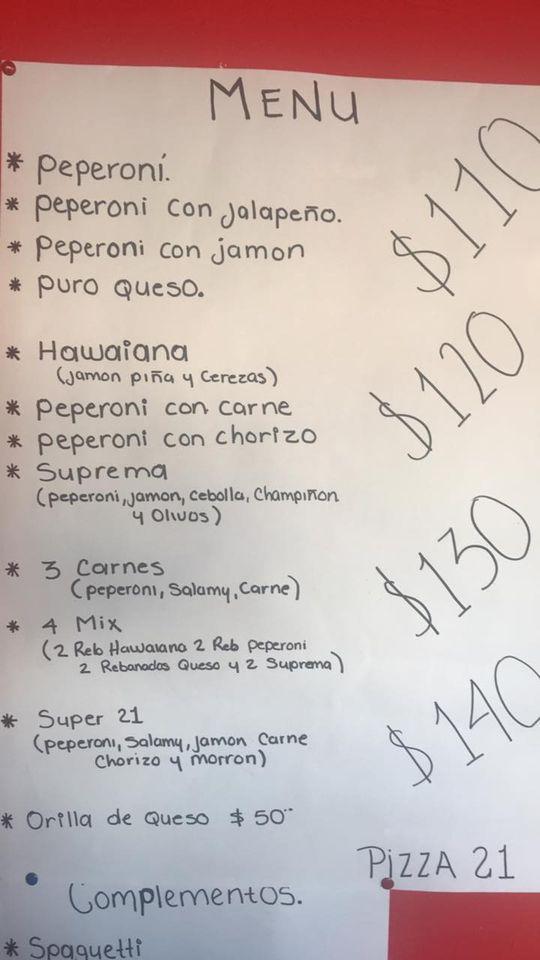 MENU
* Peperoní.
* Peperoni con Jalapeño.
* Peperoni con jamon
* Puro Queso.
$110
* Hawaiana
(Jamon piña y Cerezas)
* Peperoni con Carne
* Peperoni con Chorizo
* Suprema
(peperoni, jamon, Cebolla, Champiñon
y Olivos)
$120
* 3 Carnes
(peperoni, Salamy, Carne)
* 4 Mix
(2 Reb Hawaiana 2 Reb Peperoni
2 Rebanadas Queso y 2 Suprema)
$130
* Super 21
(peperoni, Salamy, jamon Carne
Chorizo y morron)
$140
* Orilla de Queso $ 50
PIZZA 21
Complementos.
* Spaguetti